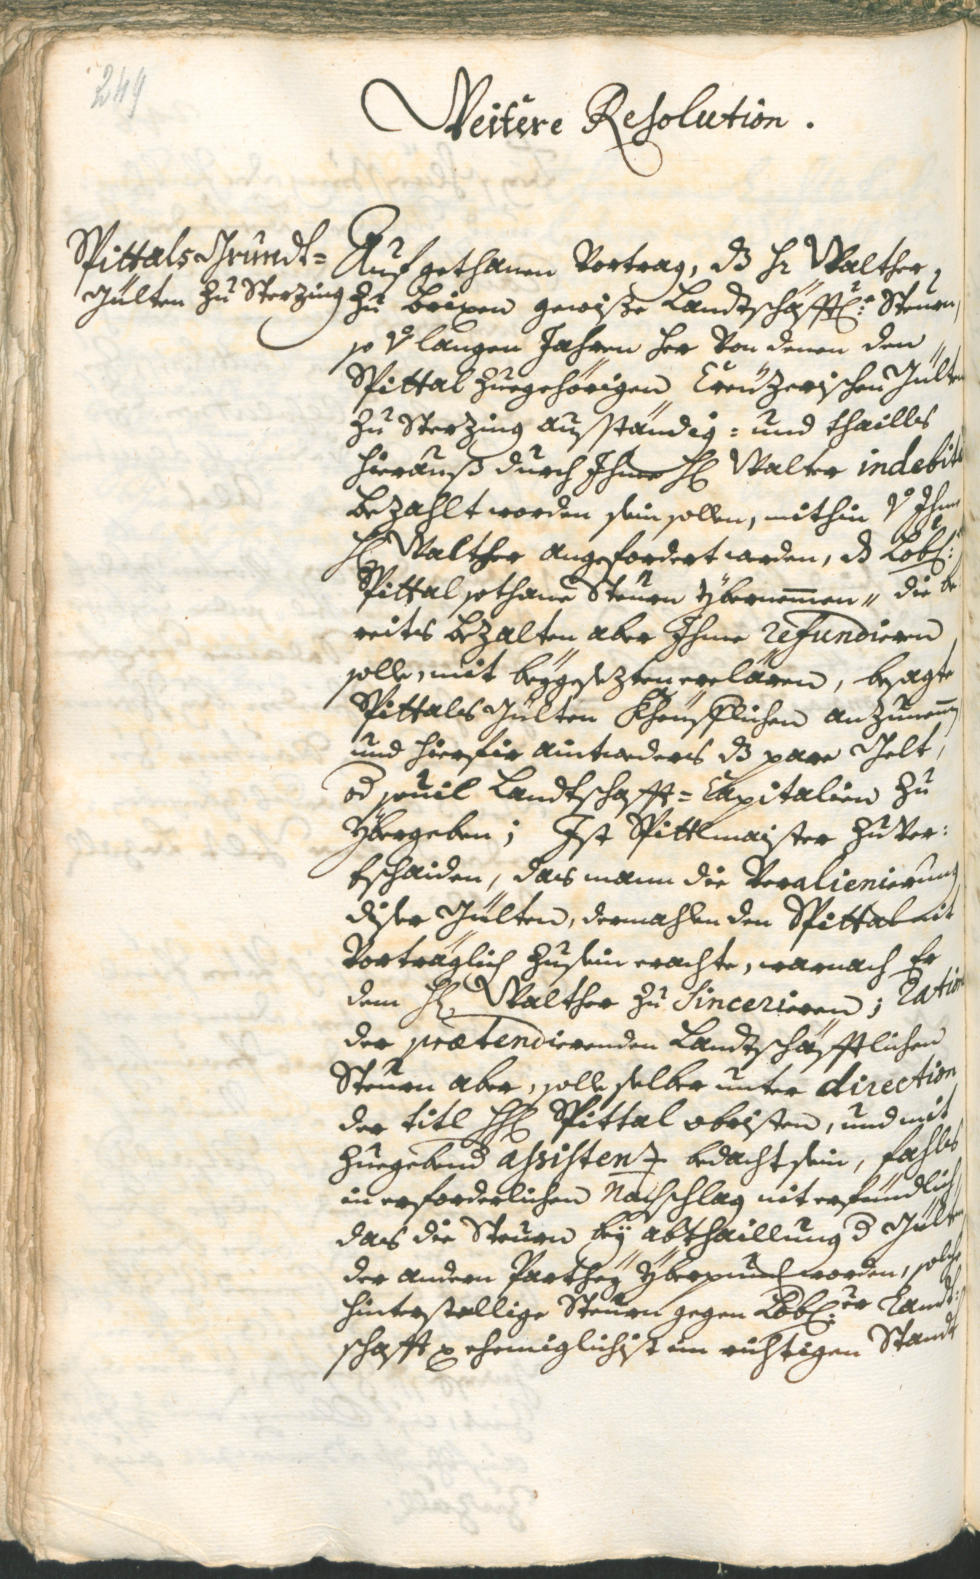 249
Weitere Resolution.
Spittals Grundt=
Gülten zu Sterzing
Auf gethanen Vortrag, dß hr Walther,
zu Brixen gewiße Landtschäfftl: Steurn,
so v langen Jahren her von denen den
Spittal zuegehörigen Creuzerischen Gülten
zu Sterzing ausständig: und thailles
hierauß durch Ihme H: Walter indebite
bezahlt worden sein sollen, mithin v Ihme
H: Walther angefordert werden, dß Löbl:
Spittal sothane Steurn ybernemmen, die be
reits bezalten aber Ihme refundieren
solle, mit beygesezten erclären, besagte
Spittals Gülten Kheufflichen anzunemen
und hierfir aintweders dß pare Gelt,
od souil Landtschafft= Capitalien zu
ybergeben; Ist Spittlmaister zu ver:
bschaiden, das mann die Veralienierung
diser Gülten, dermahlen den Spittal nit
vorträglich zusein erachte, warnach Er
dem H: Walther zu Sincerieren; Ratione
der prætendierenden Landtschäfftlichen
Steurn aber, solle selber unter direction
der titl HH: Spittal obristen, und mit
zuegebend assistenz bedacht sein, fahls
in erforderlichen Nachschlag nit erfündlich,
das die Steurn bey abthaillung d Gülten
der andern Parthey yberpund worden, solche
hinterstellige Steurn gegen Löbl:er Landt:
schafft ehemiglichist im richtigen Standt